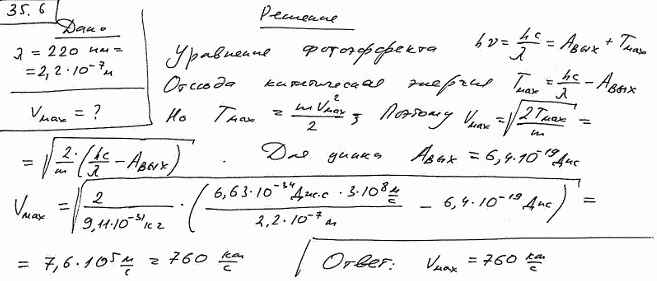 35.6
Дано
λ = 220 нм =
= 2,2·10⁻⁷ м
Vмах = ?
Решение
Уравнение фотоэффекта hν = hc/λ = Aвых + Tмах
Отсюда кинетическая энергия Tмах = hc/λ − Aвых
Но Tмах = mVмах²/2; Поэтому Vмах = √(2Tмах/m) =
= √(2/m · (hc/λ − Aвых)). Для цинка Aвых = 6,4·10⁻¹⁹ Дж
Vмах = √(2/(9,11·10⁻³¹ кг) · (6,63·10⁻³⁴ Дж·с · 3·10⁸ м/с / 2,2·10⁻⁷ м − 6,4·10⁻¹⁹ Дж)) =
= 7,6·10⁵ м/с = 760 км/с
Ответ: Vмах = 760 км/с